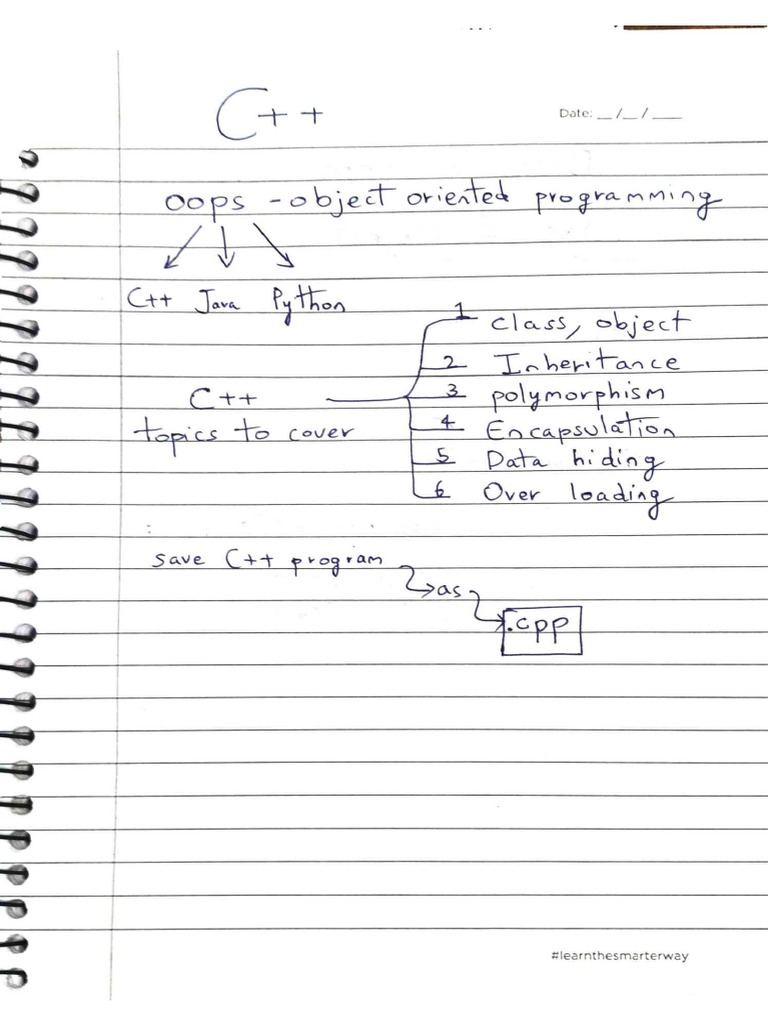 C++
Date: __/__/____
oops - object oriented programming
C++ Java Python
1 class, object
2 Inheritance
C++
3 polymorphism
topics to cover
4 Encapsulation
5 Data hiding
6 Over loading
save C++ program
as
.cpp
#learnthesmarterway